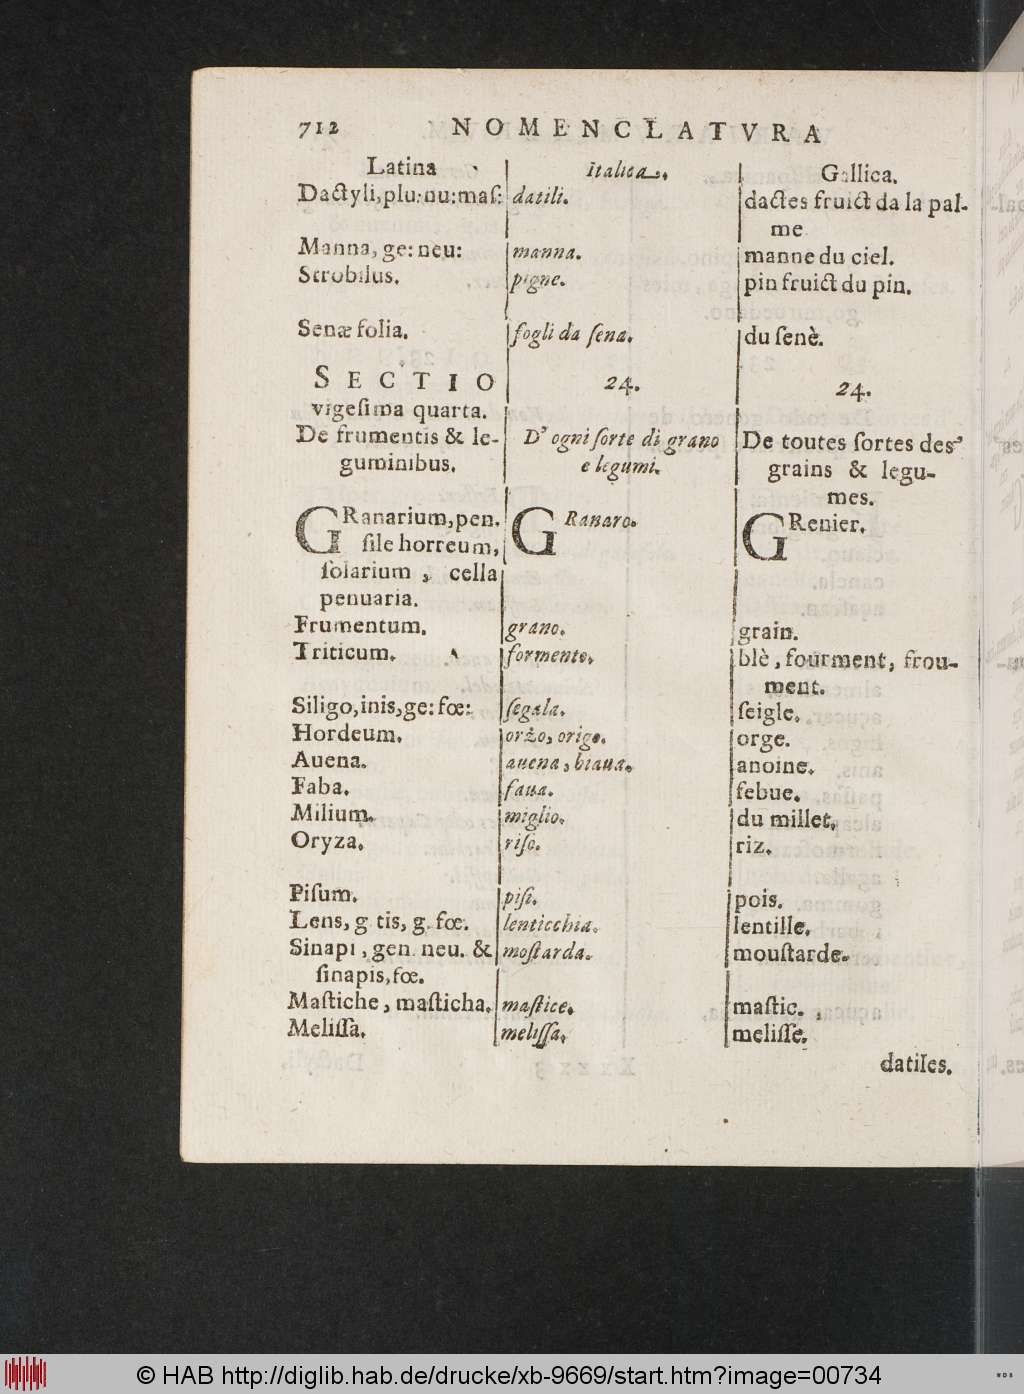 712 NOMENCLATVRA
Latina Italica. Gallica.
Dactyli, plu: nu: maſ: datili. dactes fruict da la pal-
me
Manna, ge: neu: manna. manne du ciel.
Strobilus. pigne. pin fruict du pin.
Senæ folia. fogli da ſena. du ſenè.
SECTIO 24. 24.
vigeſima quarta.
De frumentis & le- D' ogni ſorte di grano De toutes ſortes des'
guminibus. e legumi. grains & legu-
mes.
GRanarium, pen. GRanaro. GRenier.
ſile horreum,
ſolarium, cella
penuaria.
Frumentum. grano. grain.
Triticum. formento. blè, fourment, frou-
ment.
Siligo, inis, ge: fœ: ſegala. ſeigle.
Hordeum. orzo, orige. orge.
Auena. auena, biaua. anoine.
Faba. faua. febue.
Milium. miglio. du millet.
Oryza. riſo. riz.
Piſum. piſi. pois.
Lens, g tis, g. fœ. lenticchia. lentille.
Sinapi, gen. neu. & moſtarda. mouſtarde.
ſinapis, fœ.
Maſtiche, maſticha. maſtice. maſtic.
Meliſſa. meliſſa. meliſſe.
datiles.
© HAB http://diglib.hab.de/drucke/xb-9669/start.htm?image=00734